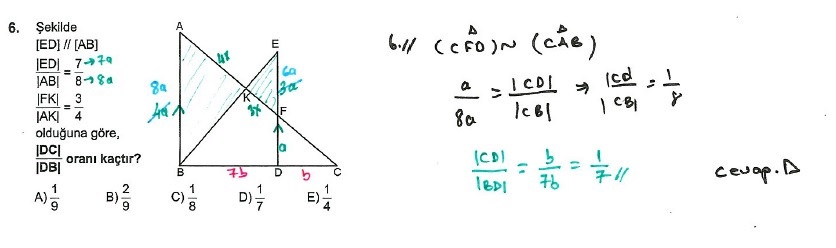 6. Şekilde
[ED] // [AB]
|ED| / |AB| = 7 / 8 → 7a → 8a
|FK| / |AK| = 3 / 4
olduğuna göre,
|DC| / |DB| oranı kaçtır?
A) 1/9 B) 2/9 C) 1/8 D) 1/7 E) 1/4
A
E
4x
8a
6a
3a
4a
K
3x
F
a
B
7b
D
b
C
6.// (CFD) ~ (CAB)
a / 8a = |CD| / |CB| ⇒ |cd| / |CB| = 1 / 8
|CD| / |BD| = b / 7b = 1 / 7 //
cevap. D